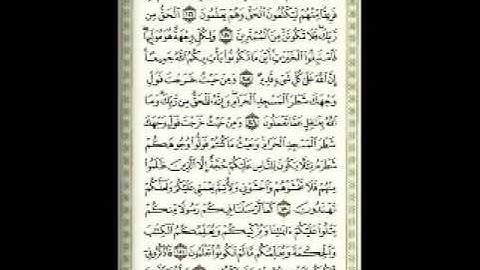 فَرِيقًا مِّنْهُمْ لَيَكْتُمُونَ ٱلْحَقَّ وَهُمْ يَعْلَمُونَ ١٤٦ ٱلْحَقُّ مِن
رَّبِّكَ فَلَا تَكُونَنَّ مِنَ ٱلْمُمْتَرِينَ ١٤٧ وَلِكُلٍّ وِجْهَةٌ هُوَ مُوَلِّيهَا
فَٱسْتَبِقُوا۟ ٱلْخَيْرَٰتِ أَيْنَ مَا تَكُونُوا۟ يَأْتِ بِكُمُ ٱللَّهُ جَمِيعًا
إِنَّ ٱللَّهَ عَلَىٰ كُلِّ شَىْءٍ قَدِيرٌ ١٤٨ وَمِنْ حَيْثُ خَرَجْتَ فَوَلِّ
وَجْهَكَ شَطْرَ ٱلْمَسْجِدِ ٱلْحَرَامِ وَإِنَّهُۥ لَلْحَقُّ مِن رَّبِّكَ وَمَا
ٱللَّهُ بِغَٰفِلٍ عَمَّا تَعْمَلُونَ ١٤٩ وَمِنْ حَيْثُ خَرَجْتَ فَوَلِّ وَجْهَكَ
شَطْرَ ٱلْمَسْجِدِ ٱلْحَرَامِ وَحَيْثُ مَا كُنتُمْ فَوَلُّوا۟ وُجُوهَكُمْ
شَطْرَهُۥ لِئَلَّا يَكُونَ لِلنَّاسِ عَلَيْكُمْ حُجَّةٌ إِلَّا ٱلَّذِينَ ظَلَمُوا۟
مِنْهُمْ فَلَا تَخْشَوْهُمْ وَٱخْشَوْنِى وَلِأُتِمَّ نِعْمَتِى عَلَيْكُمْ وَلَعَلَّكُمْ
تَهْتَدُونَ ١٥٠ كَمَآ أَرْسَلْنَا فِيكُمْ رَسُولًا مِّنكُمْ
يَتْلُوا۟ عَلَيْكُمْ ءَايَٰتِنَا وَيُزَكِّيكُمْ وَيُعَلِّمُكُمُ ٱلْكِتَٰبَ
وَٱلْحِكْمَةَ وَيُعَلِّمُكُم مَّا لَمْ تَكُونُوا۟ تَعْلَمُونَ ١٥١ فَٱذْكُرُونِىٓ